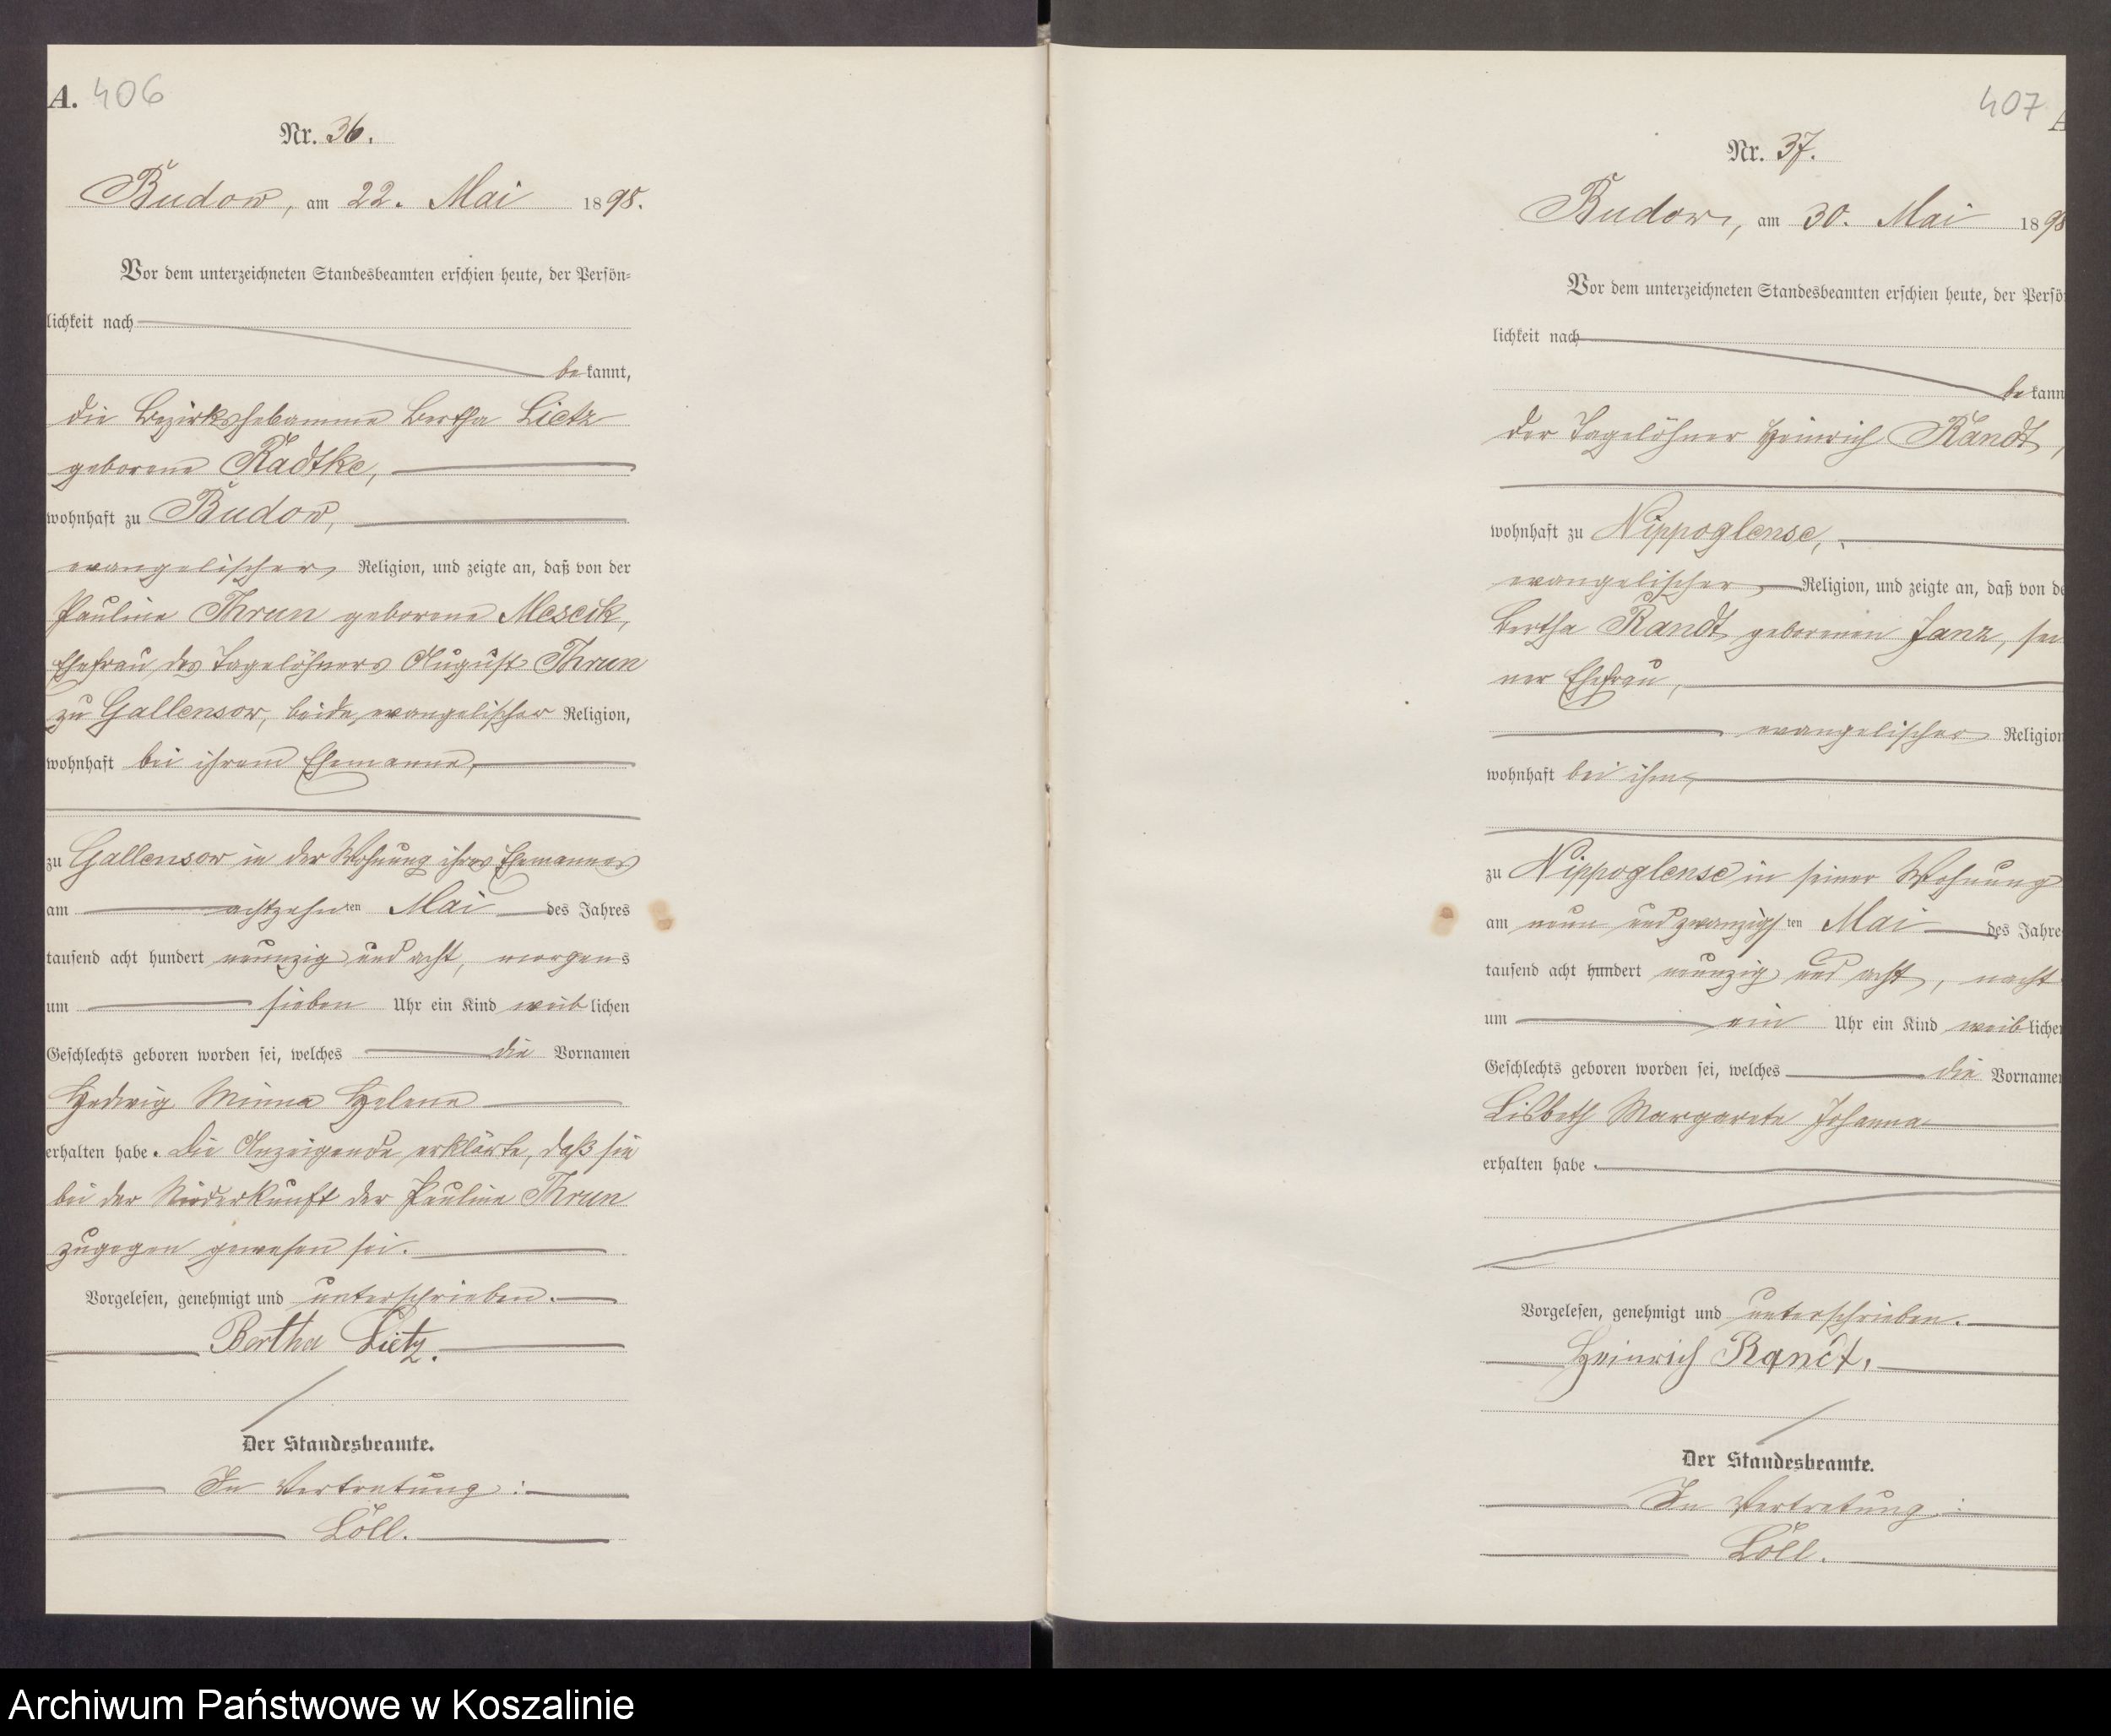 A. 406
Nr. 36.
Budow, am 22. Mai 1898.
Vor dem unterzeichneten Standesbeamten erschien heute, der Persön-
lichkeit nach
bekannt,
die Bezirkshebamme Bertha Lietz
geborene Radtke,
wohnhaft zu Budow,
evangelischer Religion, und zeigte an, daß von der
Pauline Thrun geborene Mescik,
Ehefrau des Tagelöhners August Thrun
zu Gallensow, beide evangelischer Religion,
wohnhaft bei ihrem Ehemanne,
zu Gallensow in der Wohnung ihres Ehemannes
am achtzehnten Mai des Jahres
tausend acht hundert neunzig und acht, morgens
um sieben Uhr ein Kind weiblichen
Geschlechts geboren worden sei, welches die Vornamen
Hedwig Minna Helene
erhalten habe. Die Anzeigende erklärte, daß sie
bei der Niederkunft der Pauline Thrun
zugegen gewesen sei.
Vorgelesen, genehmigt und unterschrieben.
Bertha Lietz.
Der Standesbeamte.
In Vertretung:
Löll.
407
Nr. 37.
Budow, am 30. Mai 1898
Vor dem unterzeichneten Standesbeamten erschien heute, der Persö
lichkeit nach
bekann
der Tagelöhner Heinrich Randt,
wohnhaft zu Nippoglense,
evangelischer Religion, und zeigte an, daß von de
Bertha Randt geborenen Janz, sei
ner Ehefrau,
evangelischer Religion
wohnhaft bei ihm,
zu Nippoglense in seiner Wohnung
am neun und zwanzigsten Mai des Jahre
tausend acht hundert neunzig und acht, nacht
um ein Uhr ein Kind weibliche
Geschlechts geboren worden sei, welches die Vorname
Lisbeth Margarete Johanna
erhalten habe.
Vorgelesen, genehmigt und unterschrieben.
Heinrich Randt.
Der Standesbeamte.
In Vertretung:
Löll.
Archiwum Państwowe w Koszalinie